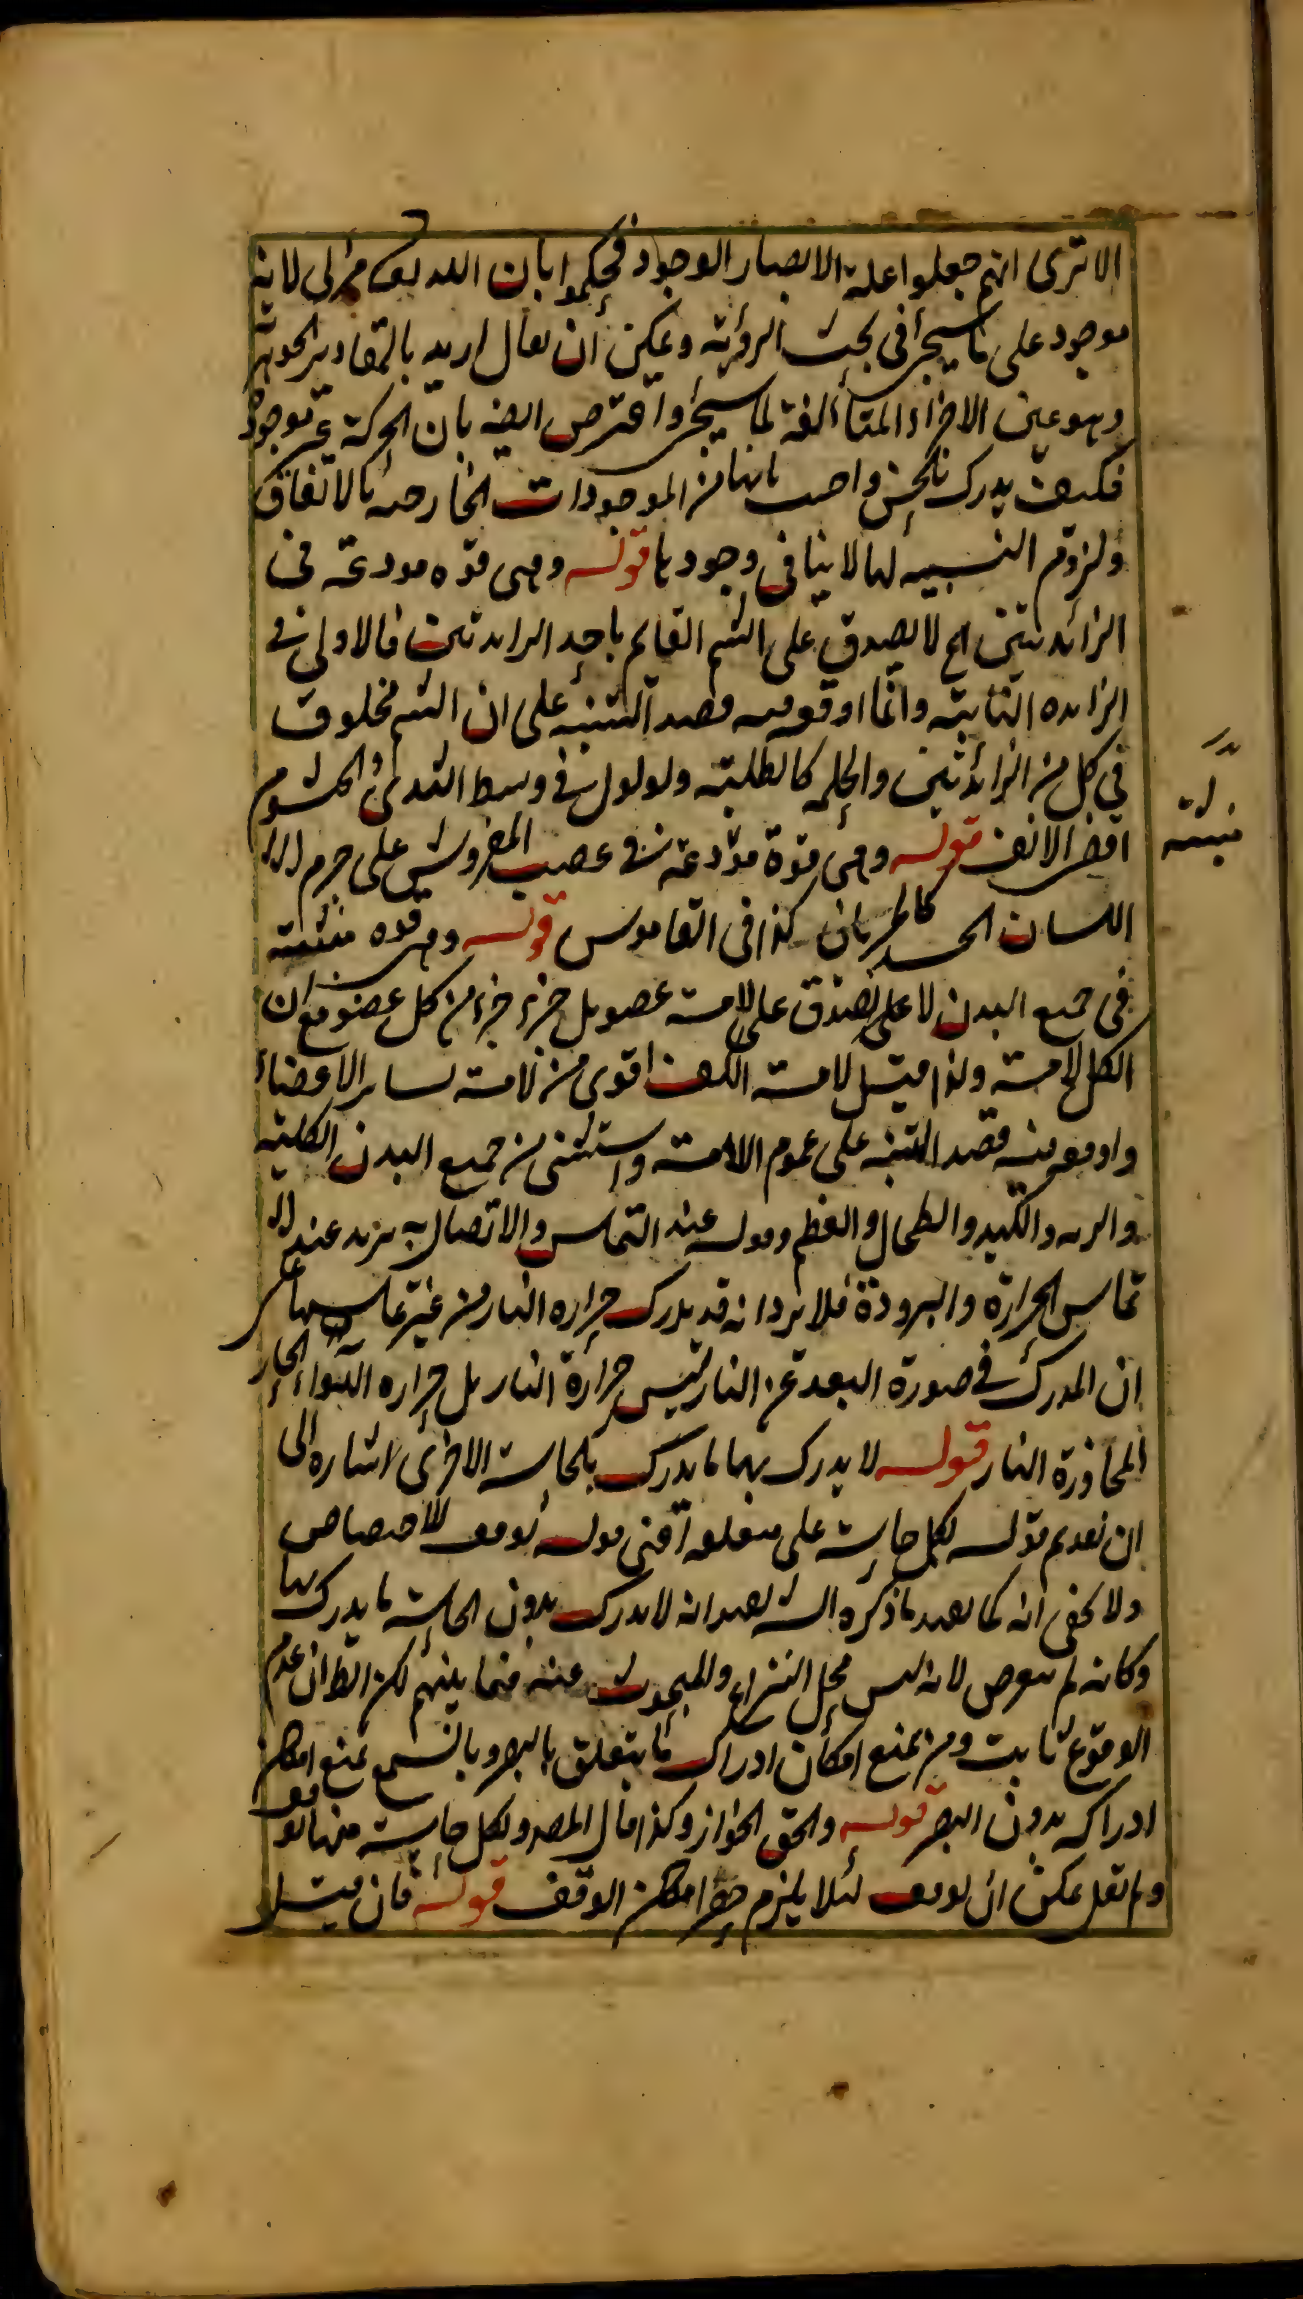 الا ترى انهم جعلوا علة الابصار الوجود فحكموا بان الله تعالى مرئي لانه
موجود على ما سيجئ في بحث الرؤية ويمكن أن يقال اريد بالمقادير الجوهر
وهو عين الاجزاء المتألفة لما سيجئ واعترض ايضا بان الحركة غير موجودة
فكيف يدرك بالحس واجيب بانها من الموجودات الخارجية بالاتفاق
ولزوم النسبية لها لا ينافي وجودها قوله وهي قوة مودعة في
الزائدتين الخ لا يصدق على الشم القايم باحد الزائدتين فالاولى في
الزائدة النابتة وانما اوقعه قصد التنبيه على ان الشم مخلوق
في كل من الزائدتين والحلمة كالطلبة ولولول في وسط الثدي والخيشوم
اقصى الانف قوله وهي قوة مودعة في عصب المفروش على جرم
اللسان الجسد كالجربان كذا في القاموس قوله وهي قوة منبثة
في جميع البدن لا يصدق على لامسة عضو بل جزء جزء من كل عضو مع ان
الكل لامسة ولذا قيل لامسة الكف اقوى من لامسة ساير الاعضاء
واوقعه فيه قصد التنبيه على عموم اللامسة واستثنى من جميع البدن الكلية
والرية والكبد والطحال والعظم وقوله عند التماس والاتصال به يريد عند
تماس الحرارة والبرودة فلا يرد انه قد يدرك حرارة النار من غير تماسها على
ان المدرك في صورة البعد عن النار ليس حرارة النار بل حرارة الهواء الحار
المجاورة النار قوله لا يدرك بها ما يدرك بالحاسة الاخرى اشارة الى
ان تقديم قوله لكل حاسة على متعلقه اعني قوله توقف للاختصاص
ولا يخفى انه كما يفيد ما ذكره الش يفيد انه لا يدرك بدون الحاسة ما يدرك بها
وكانه لم يتعرض لانه ليس محل النزاع والمبحوث عنه فيما بينهم لكن الظ ان عدم
الوقوع ثابت ومن يمنع امكان ادراك ما يتعلق بالبصر وبالسمع يمنع امكان
ادراكه بدون البصر قوله والحق الجواز وكذا قال المص وبكل حاسة منها توقف
ولم يقل يمكن ان توقف لئلا يلزم حصر امكان الوقف قوله فان قيل
منبثة